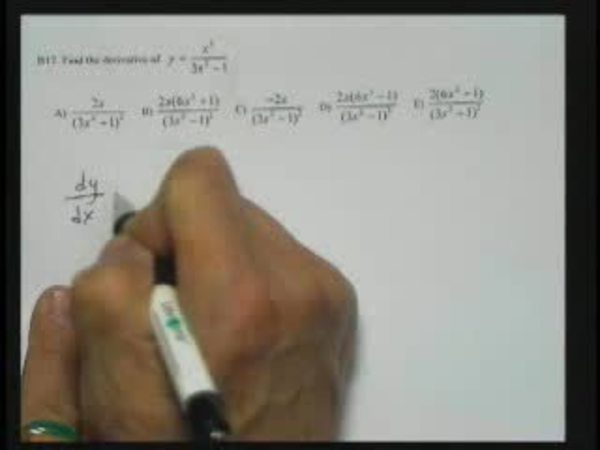 B17. Find the derivative of y = x² / 3x² - 1
A) 2x / (3x² - 1)² B) 2x(6x² + 1) / (3x² - 1)² C) -2x / (3x² - 1)² D) 2x(6x² - 1) / (3x² - 1)² E) 2(6x² - 1) / (3x² - 1)²
dy
dx